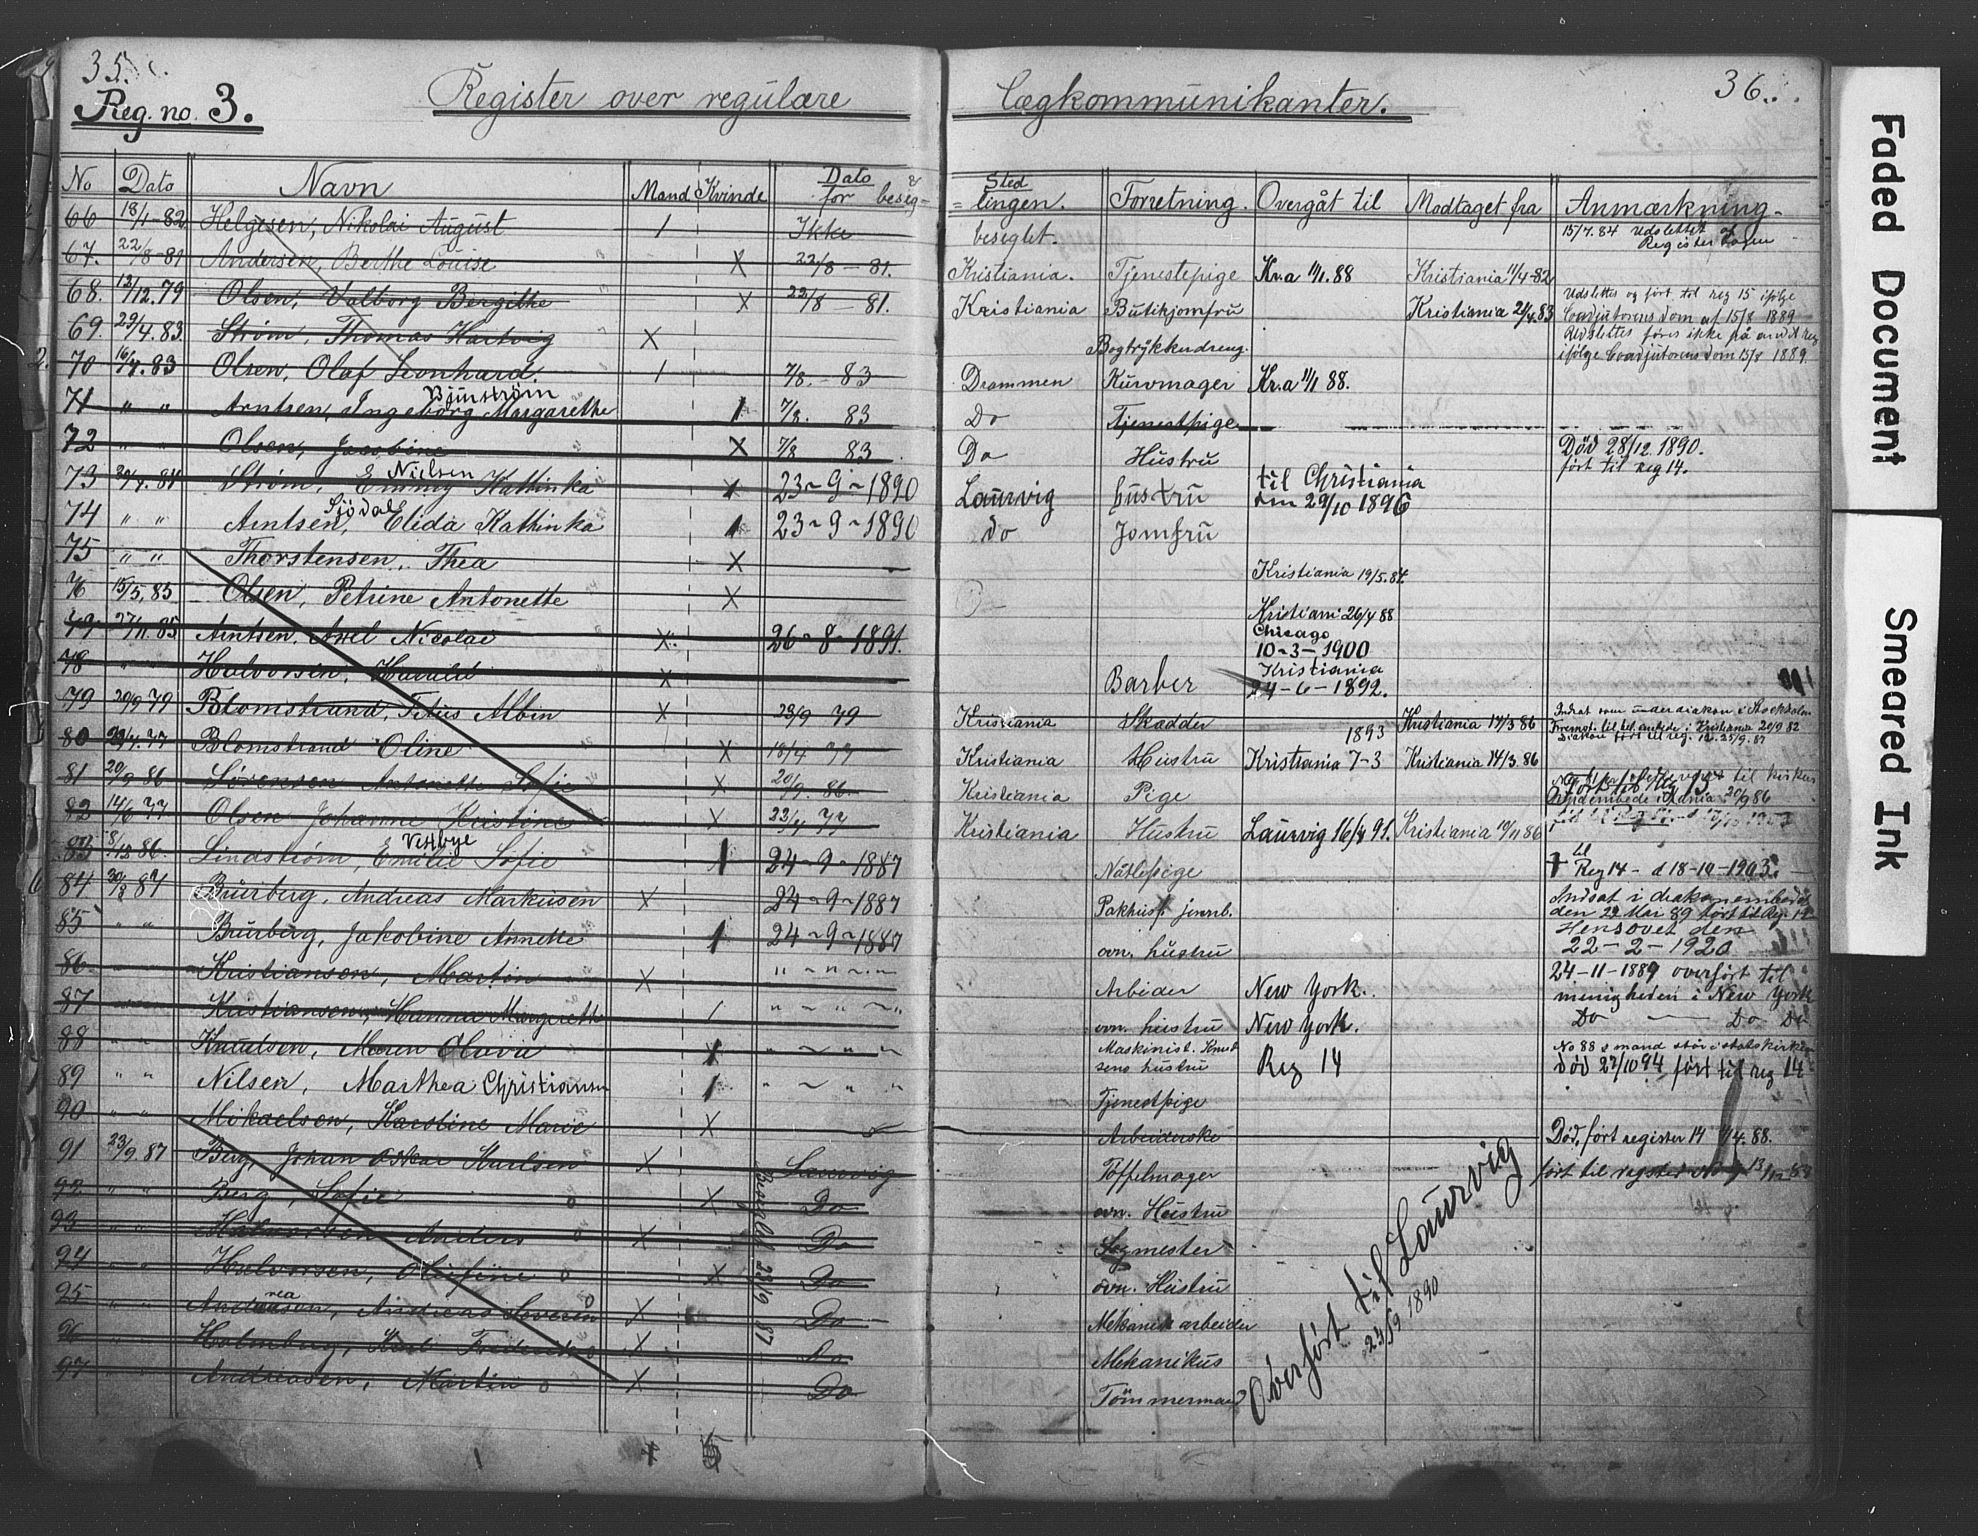 35.
Reg. no. 3. Register over regulære Lægkommunikanter. 36.
No Dato Navn Mand Kvinde Dato for beseg= Sted =lingen. Forretning. Overgåt til Modtaget fra Anmærkning.
66 18/1-82 Helgesen, Nikolai August 1 Ikke beseglet. 15/7.84 Udslettet af Registerbogen
67. 22/8-81 Andersen, Berthe Louise X 22/8-81. Kristiania. Tjenestepige Kr.a 11/1.88 Kristiania 11/4-82
68. 12/12.79 Olsen, Valborg Bergithe X 22/8 81. Kristiania Butikjomfru Kristiania 24/4.83 Udslettes og ført til reg 15 ifølge Coadjutorens dom af 15/8 1889
69. 29/4.83. Strøm, Thomas Hartvig X Bogtrykkerdreng. Udslettes føres ikke på andet reg ifølge Coadjutorens dom 15/8 1889.
70 16/7.83 Olsen, Olaf Leonhard. 1 7/8.-83 Drammen Kurvmager Kr.a 11/1 88.
71 " " Arntsen, Ingeborg Margarethe 1 7/8. 83 Do Tjenestpige
72 " " Olsen, Jacobine X 7/8 83 Do Hustru Død 28/12.1890. ført til reg 14.
73 Strøm, Nilsen Emmy Kathinka 1 23-9-1890 Laurvig hustru til Christiania den 29/10 1896
74 " " Arntsen, Sjödal Elida Kathinka 1 23-9-1890 do Jomfru
75 " " Thorstensen, Thea X Kristiania 19/5.84.
76 15/5.85 Olsen, Petrine Antonette X Kristiani 26/4 88
27/11.85 Arntsen, Axel Nicolai X. 26-8-1891. Chicago 10-3-1900
78 Halvorsen, Harald X Barber Kristiania 24-6-1892.
79 20/9 79 Blomstrand, Titus Albin X 23/9 79 Kristiania Skrædder Kristiania 14/3 86 Indsat som underdiakon i Stockholm
80 Blomstrand Oline X 18/4 77 Kristiania Hustru 1893 Kristiania 7-3 Kristiania 14/3.86
81 20/9 86 Sørensen Antonette Sofie X 20/9. 86. Kristiania Pige 20/9 86
82 14/6 77 Olsen Johanne Kristine X 23/4 77 Kristiania Hustru Laurvig 16/4 91. Kristiania 19/11 86
83 8/12 86. Lindstrøm, Vestbye Emilie Sofie 1 24-9-1887 Nåtlepige til Reg 14 - d 18-10-1903.
84 30/8 87 Brurberg, Andreas Markusen X 24-9-1887 Pakhusf. jernb. Indsat i diakonembedet den 22 Mai 89 ført til Reg. 12
85 " " Brurberg, Jakobine Annette 1 24-9-1887 ovn. hustru Hensovet den 22-2-1920
86 Kristiansen, Martin X " " " Arbeider New York. 24-11-1889 overført til menigheden i New York
87 Kristiansen, Hanna Margrethe 1 " " " ovn. hustru New York. Do Do Do
88 " " Knudsen, Maren Olavie 1 " " " Maskinist. Knud sens hustru Reg 14 No 88 s mand står i statskirken død 27/10 94 ført til reg 14
89 " " Nilsen, Marthea Christiansen 1 " " " Tjenestpige
90 " " Mikaelsen, Karoline Marie X Arbeiderske Død, ført register 14 /4.88.
91 23/9.87 Berg, Johan Oskar Karlsen X Laurvig Töffelmager ført til register
92 " " Berg, Sofie o X Do ovn. Hustru
93 " " Halvorsen Anders o X Do Sagmester
94 " " Halvorsen, Olufine o X Do ovn. Hustru
95 " " Andreasen, Andreas Severin o X Do Mekanisk arbeider
96 Holmberg, Karl Fredrik o X Do Mekanikus
97 Andreasen, Martin o X Do Tömmermand
Beseglet 23/9 87
Overført til Laurvig 23/9 1890
1 4 5
Faded Document
Smeared Ink